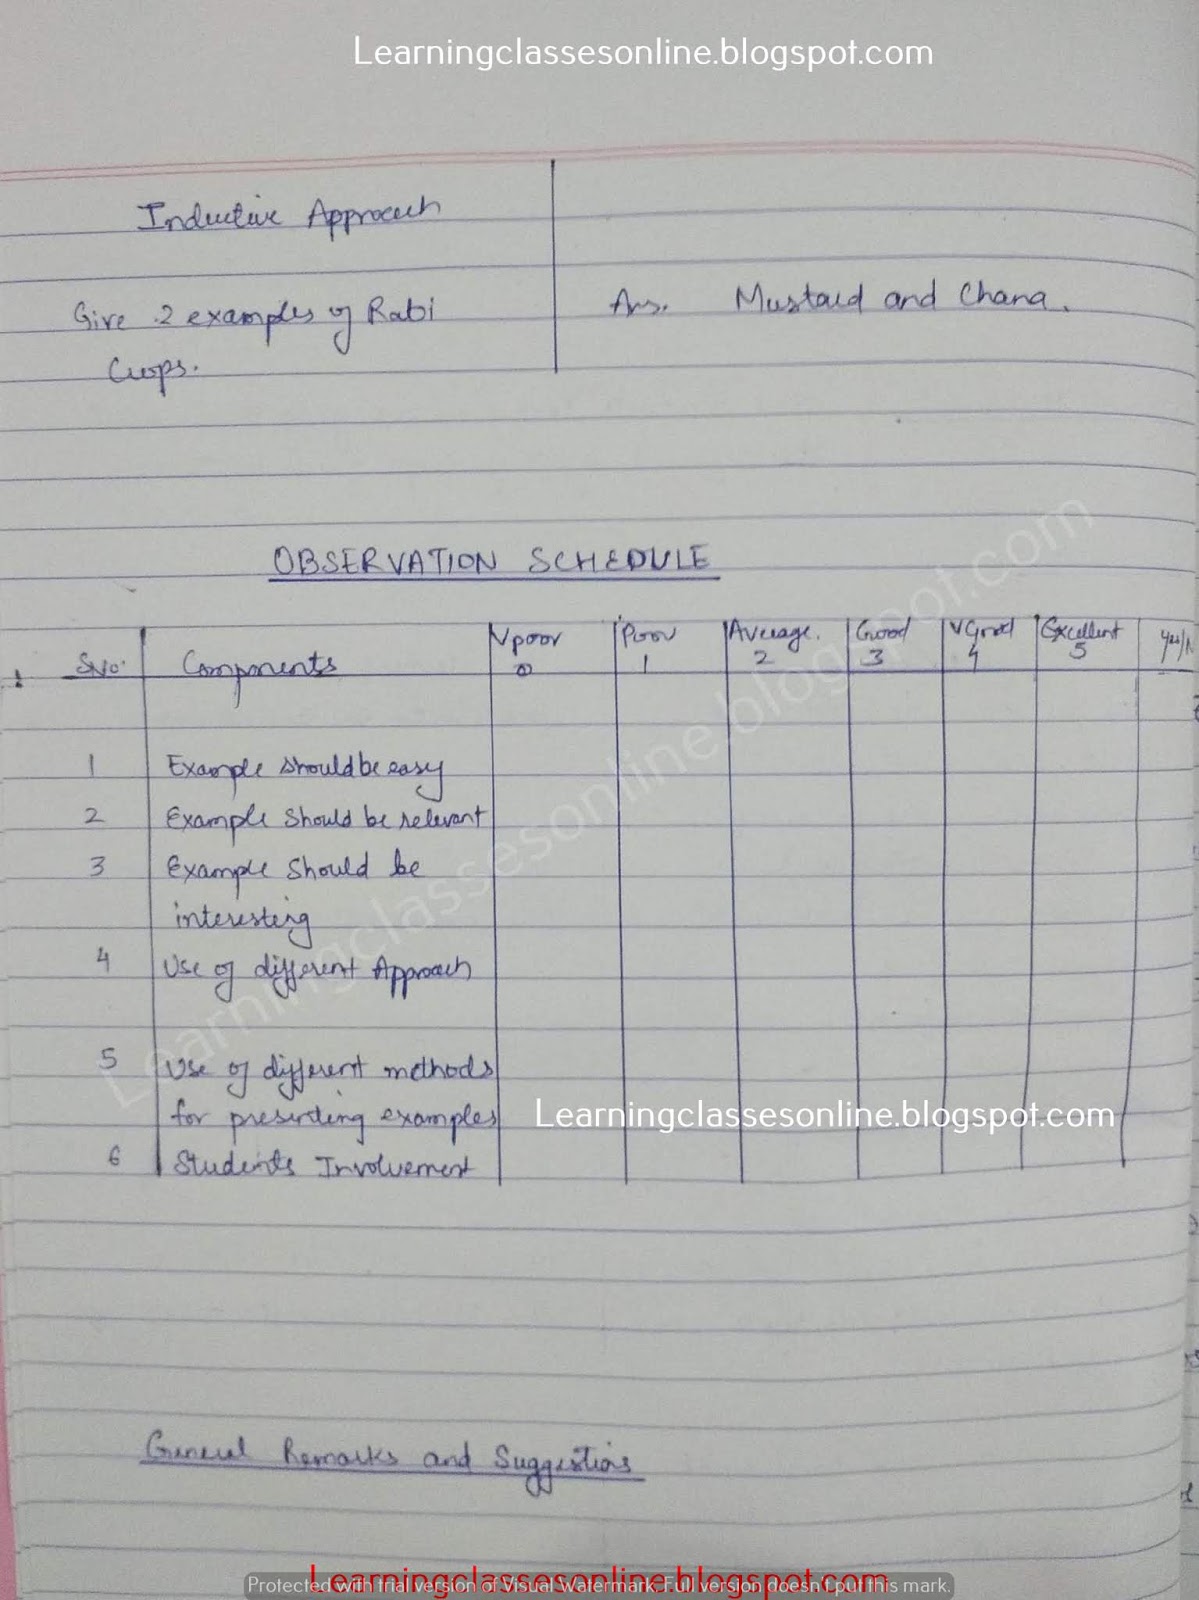 Learningclassesonline.blogspot.com
Inductive Approach
Give 2 examples of Rabi Ans. Mustard and Chana.
Crops.
OBSERVATION SCHEDULE
SNo. Components Vpoor 0 Poor 1 Average. 2 Good 3 VGood 4 Excellent 5 Yes/N
1 Example should be easy
2 Example Should be relevant
3 Example Should be
interesting
4 Use of different Approach
5 Use of different methods
for presenting examples
Learningclassesonline.blogspot.com
6 Students Involvement
General Remarks and Suggestions
Learningclassesonline.blogspot.com
Learningclassesonline.blogspot.com
Protected with trial version of Visual Watermark. Full version doesn't put this mark.